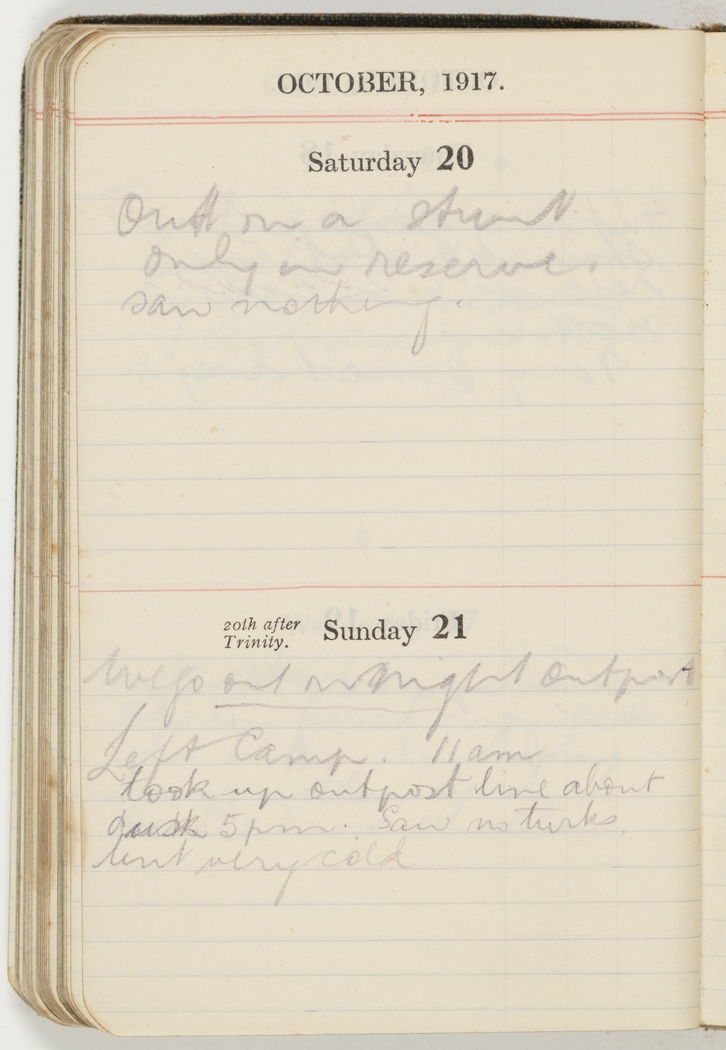 OCTOBER, 1917.
Saturday 20
Out on a stunt
only in reserve.
saw nothing.
20th after
Trinity.
Sunday 21
We go out on night outpost
Left Camp. 11 am
took up outpost line about
dusk 5 pm. Saw no turks.
very cold